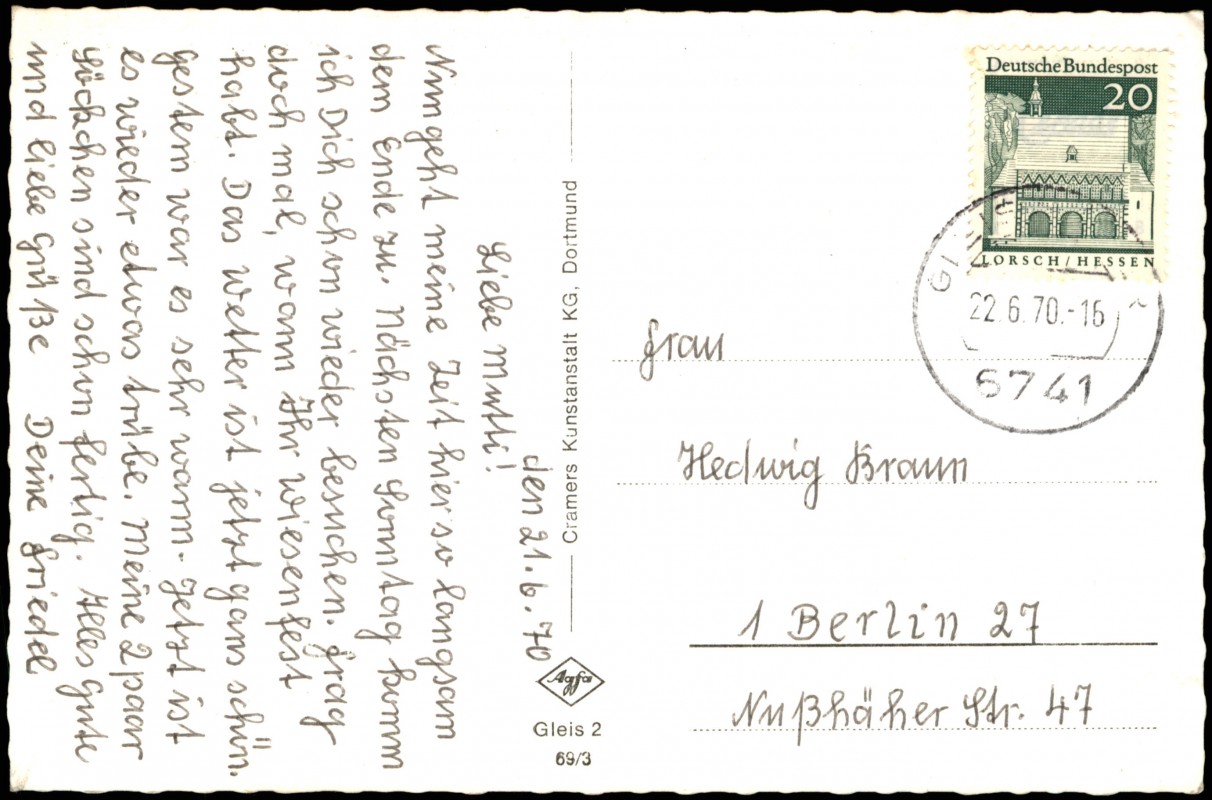 den 21.6.70
Liebe Mutti!
Nun geht meine Zeit hier so langsam
dem Ende zu. Nächsten Sonntag kumm
ich Dich schon wieder besuchen. Frag
doch mal, wann Ihr Wiesenfest
habt. Das Wetter ist jetzt gans schön.
gestern war es sehr warm. Jetzt ist
es wieder etwas trübe. Meine 2 paar
Söckchen sind schon fertig. Alles gute
und liebe grüße Deine Friedel
Cramers Kunstanstalt KG, Dortmund
Agfa
Gleis 2
69/3
Deutsche Bundespost
20
LORSCH/HESSEN
22.6.70.-16
6741
Frau
Hedwig Braun
1 Berlin 27
Nußhäher Str. 47